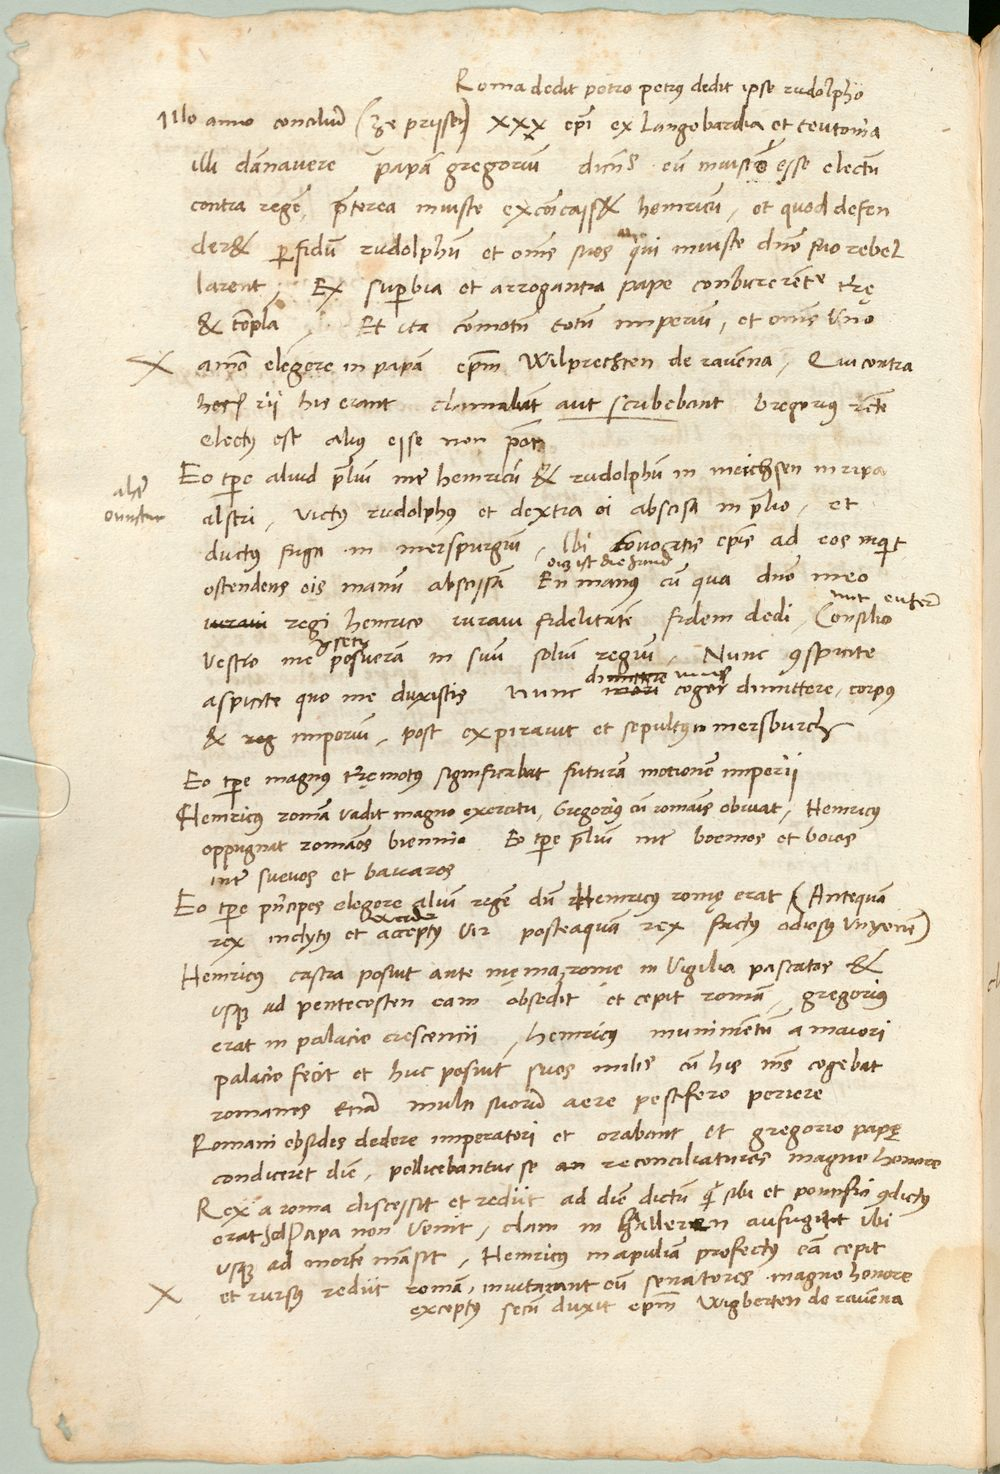 Roma dedit petro petrus dedit ipse rudolpho
Illo anno conciliū (ze prijsen) xxx epī ex Langobardia et teutonia
illi dānavere papā gregoriū dicn̄s eū iniuste esse electū
contra regē, p̄terea iniuste excōicass& heinricū, et quod defen
der& ꝑfidū rudolphū et om̄s suos qui iniuste dn̄o suo rebel
larent, Ex suꝑbia et arrogantia pape conbureren̄t tr̄ę
& tēpla, Et ita cōmotū totū imperiū, et om̄s uno
X aīo elegere in papā ep̄m Wilprechten de ravēna, Qui contra
his erant clamabāt aut scribebant Gregorius rēte
electus est alius esse non pōt
Eo tp̄e aliud p̄liū int̄ heinricū & rudolphū in meichsen in ripa
alstri, victus rudolphus et dextra ei abscisa in p̄lio, et
ductus fuga in merspurgū, Ibi convocatis ep̄is ad eos inquit
diz ist die hand
ostendens eis manū abscissā En manus cū qua dn̄o meo
mit euerm
iuravi regi heinrico iuravi fidelitatē fidem dedi, Consilio
vestro me posuerā in suū soliū regiū, Nunc ꝯspicite
aspicite quo me duxistis nunc mori cogor dimittere, corpus
& reg imperiū, post expiravit et sepultus in mersburch
Eo tp̄e magnus tr̄ęmotus significabat futurā motionē imperii
Heinricus romā vadit magno exercitu, Gregorius cū romanis obviat, Heinricus
oppugnat romanos biennio Eo tp̄e p̄liū int̄ boemos et boios
int̄ suevos et bavaros
Eo tp̄e pn̄cipes elegere aliū regē dū Heinricus romę erat (Antequā
rex inclytus et acceptus vir posteaquā rex factus odiosus
Heinricus castra posuit ante męnia rome in vigilia pascatos &
usqꝫ ad pentecosten eam obsedit et cepit romā, gregorius
erat in palacio crescencii, heinricus munimētū a maiori
palacio fecit et huc posuit suos milites cū his cogebat
romanos Etiā multi suorū aere pestifero periere
Romani obsides dedere imperatori et orabant ut gregorio papę
condiceret diē, pollicebantur se reconciliaturos magno honore
Rex a roma discessit et rediit ad diē dictū sibi et pontifici ꝯdictus
erat sed Papa non venit, clam in halleren aufugit ibi
usqꝫ ad mortē māsit, Heinricus in apuliā profectus eā cepit
X et rursus rediit romā, invitarant eū senatores magno honore
exceptus secū duxit ep̄m Wigberten de ravēna